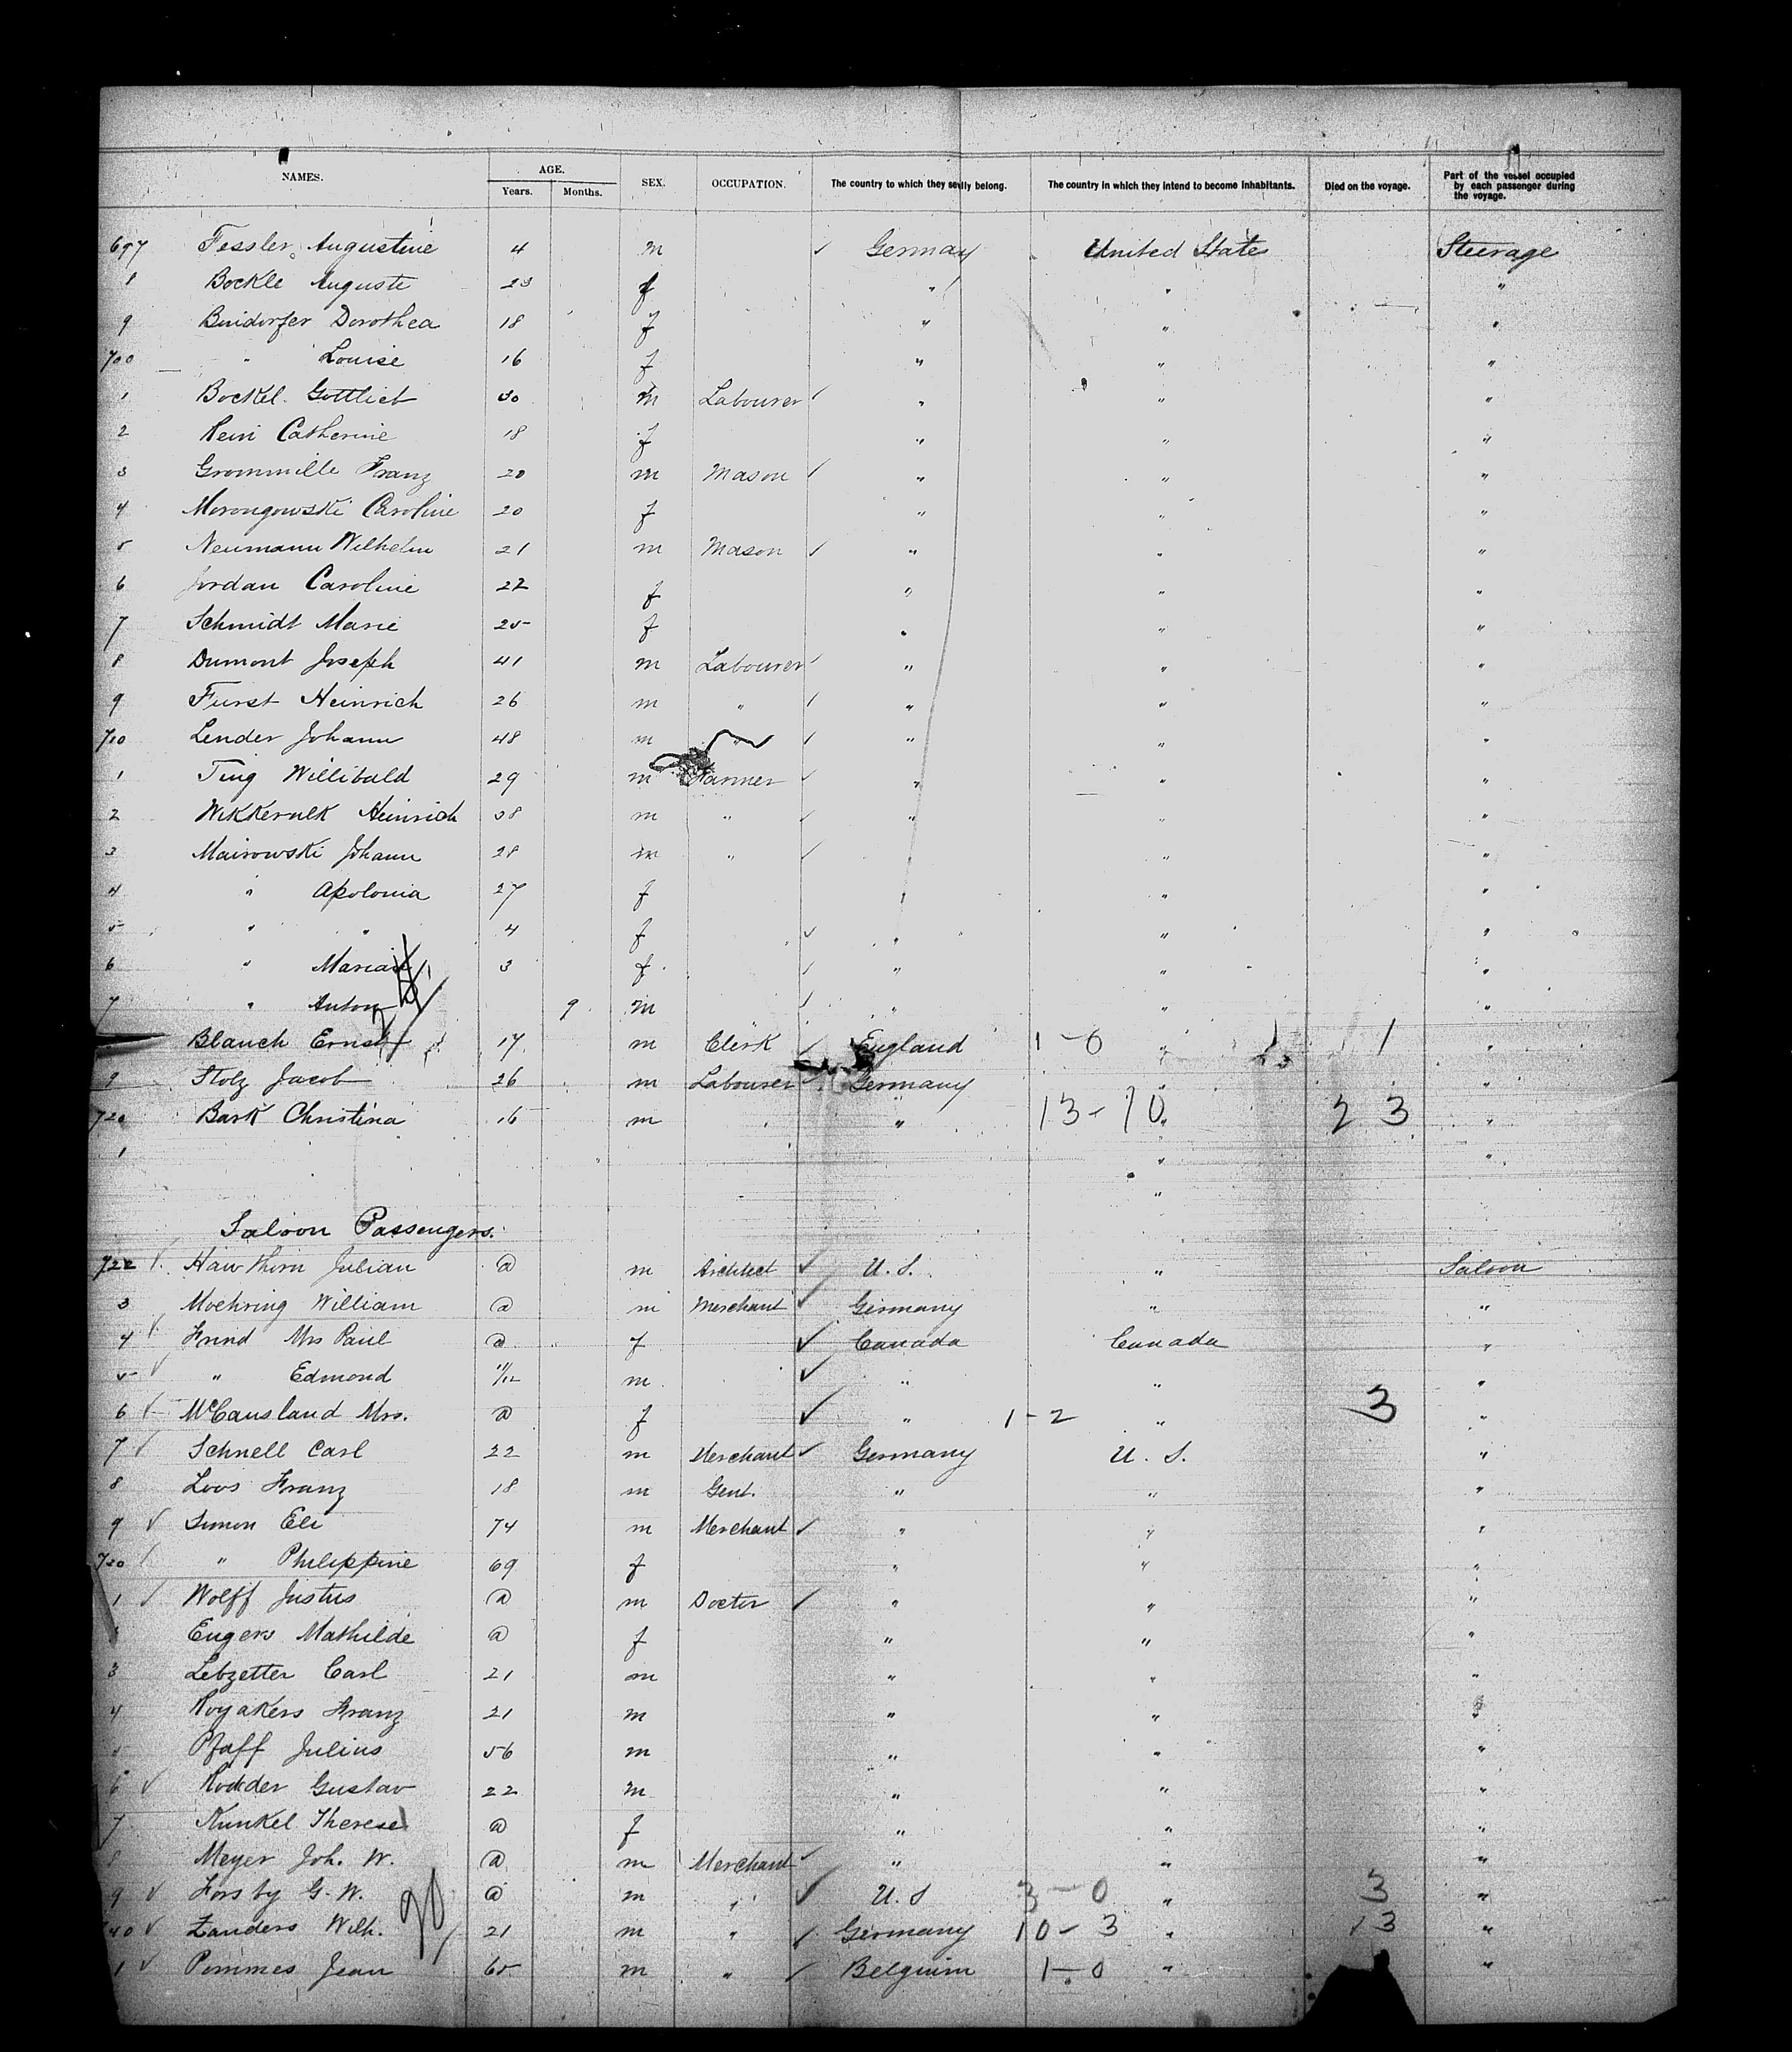 NAMES. AGE. Years. Months. SEX. OCCUPATION. The country to which they severally belong. The country in which they intend to become inhabitants. Died on the voyage. Part of the vessel occupied by each passenger during the voyage.
697 Fessler Augustine 4 m ✓ Germany United State Steerage
8 Bockle Auguste 23 f " " "
9 Dorothea 18 f " " "
700 " Louise 16 f " " "
1 Bockel Gottlieb 30 m Labourer ✓ " " "
2 Catherine 18 f " " "
3 Grommille Franz 20 m Mason ✓ " " "
4 Morongowski Caroline 20 f " " "
5 Neumann Wilhelm 21 m Mason ✓ " " "
6 Jordan Caroline 22 f " " "
7 Schmidt Marie 25 f " " "
8 Dumont Joseph 41 m Labourer ✓ " " "
9 Furst Heinrich 26 m " ✓ " " "
710 Lender Johann 48 m " ✓ " " "
1 Ting Willibald 29 m Farmer ✓ " " "
2 Heinrich 38 m " ✓ " " "
3 Mairowski Johann 28 m " ✓ " " "
4 " Apolonia 27 f " " "
5 " " 4 f ✓ " " "
6 " Maria 3 f ✓ " " "
7 " Anton 9 m ✓ " " "
Blanch Ernst 17 m Clerk ✓ England 1-0 " 1 "
9 Stolz Jacob 26 m Labourer ✓ Germany " "
720 Bark Christina 16 m " 13-10 " 23 "
1 " "
"
Saloon Passengers.
722 ✓ Hawthorn Julian @ m Architect ✓ U.S. " Saloon
3 Moehring William @ m Merchant ✓ Germany " "
4 ✓ Mrs Paul @ f ✓ Canada Canada "
5 ✓ " Edmond 11/12 m ✓ " " "
6 ✓ McCausland Mrs. @ f ✓ " 1-2 " 3 "
7 ✓ Schnell Carl 22 m Merchant ✓ Germany U.S. "
8 Loos Franz 18 m Gent. " " "
9 ✓ Simon Eli 74 m Merchant ✓ " " "
730 ✓ " Philippine 69 f " " "
1 ✓ Wolff Justus @ m Doctor ✓ " " "
Engers Mathilde @ f " " "
3 Lebzetter Carl 21 m " " "
4 Royakers Franz 21 m " " "
5 Pfaff Julius 56 m " " "
6 ✓ Gustav 22 m " " "
7 Kunkel Therese @ f " " "
8 Meyer Joh. W. @ m Merchant ✓ " " "
9 ✓ Forsby G. W. @ m " ✓ U.S 3-0 " 3 "
40 ✓ Zanders Wilh. 21 m " ✓ Germany 10-3 " 13 "
1 ✓ Pommes Jean 65 m " ✓ Belgium 1-0 " "